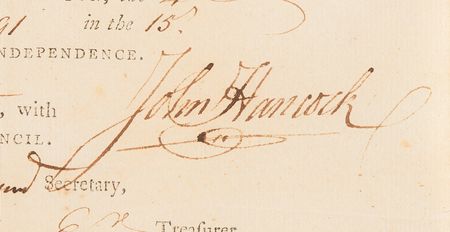 91 in the 15.
NDEPENDENCE.
John Hancock
, with
NCIL.
Secretary,
Treasurer